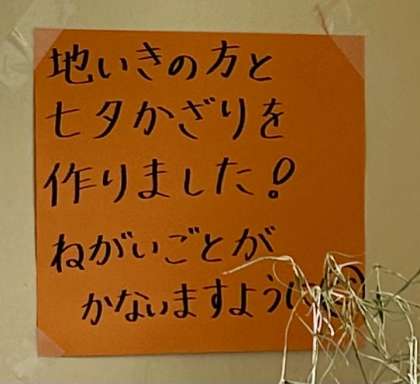 地いきの方と
七夕かざりを
作りました!
ねがいごとが
かないますように